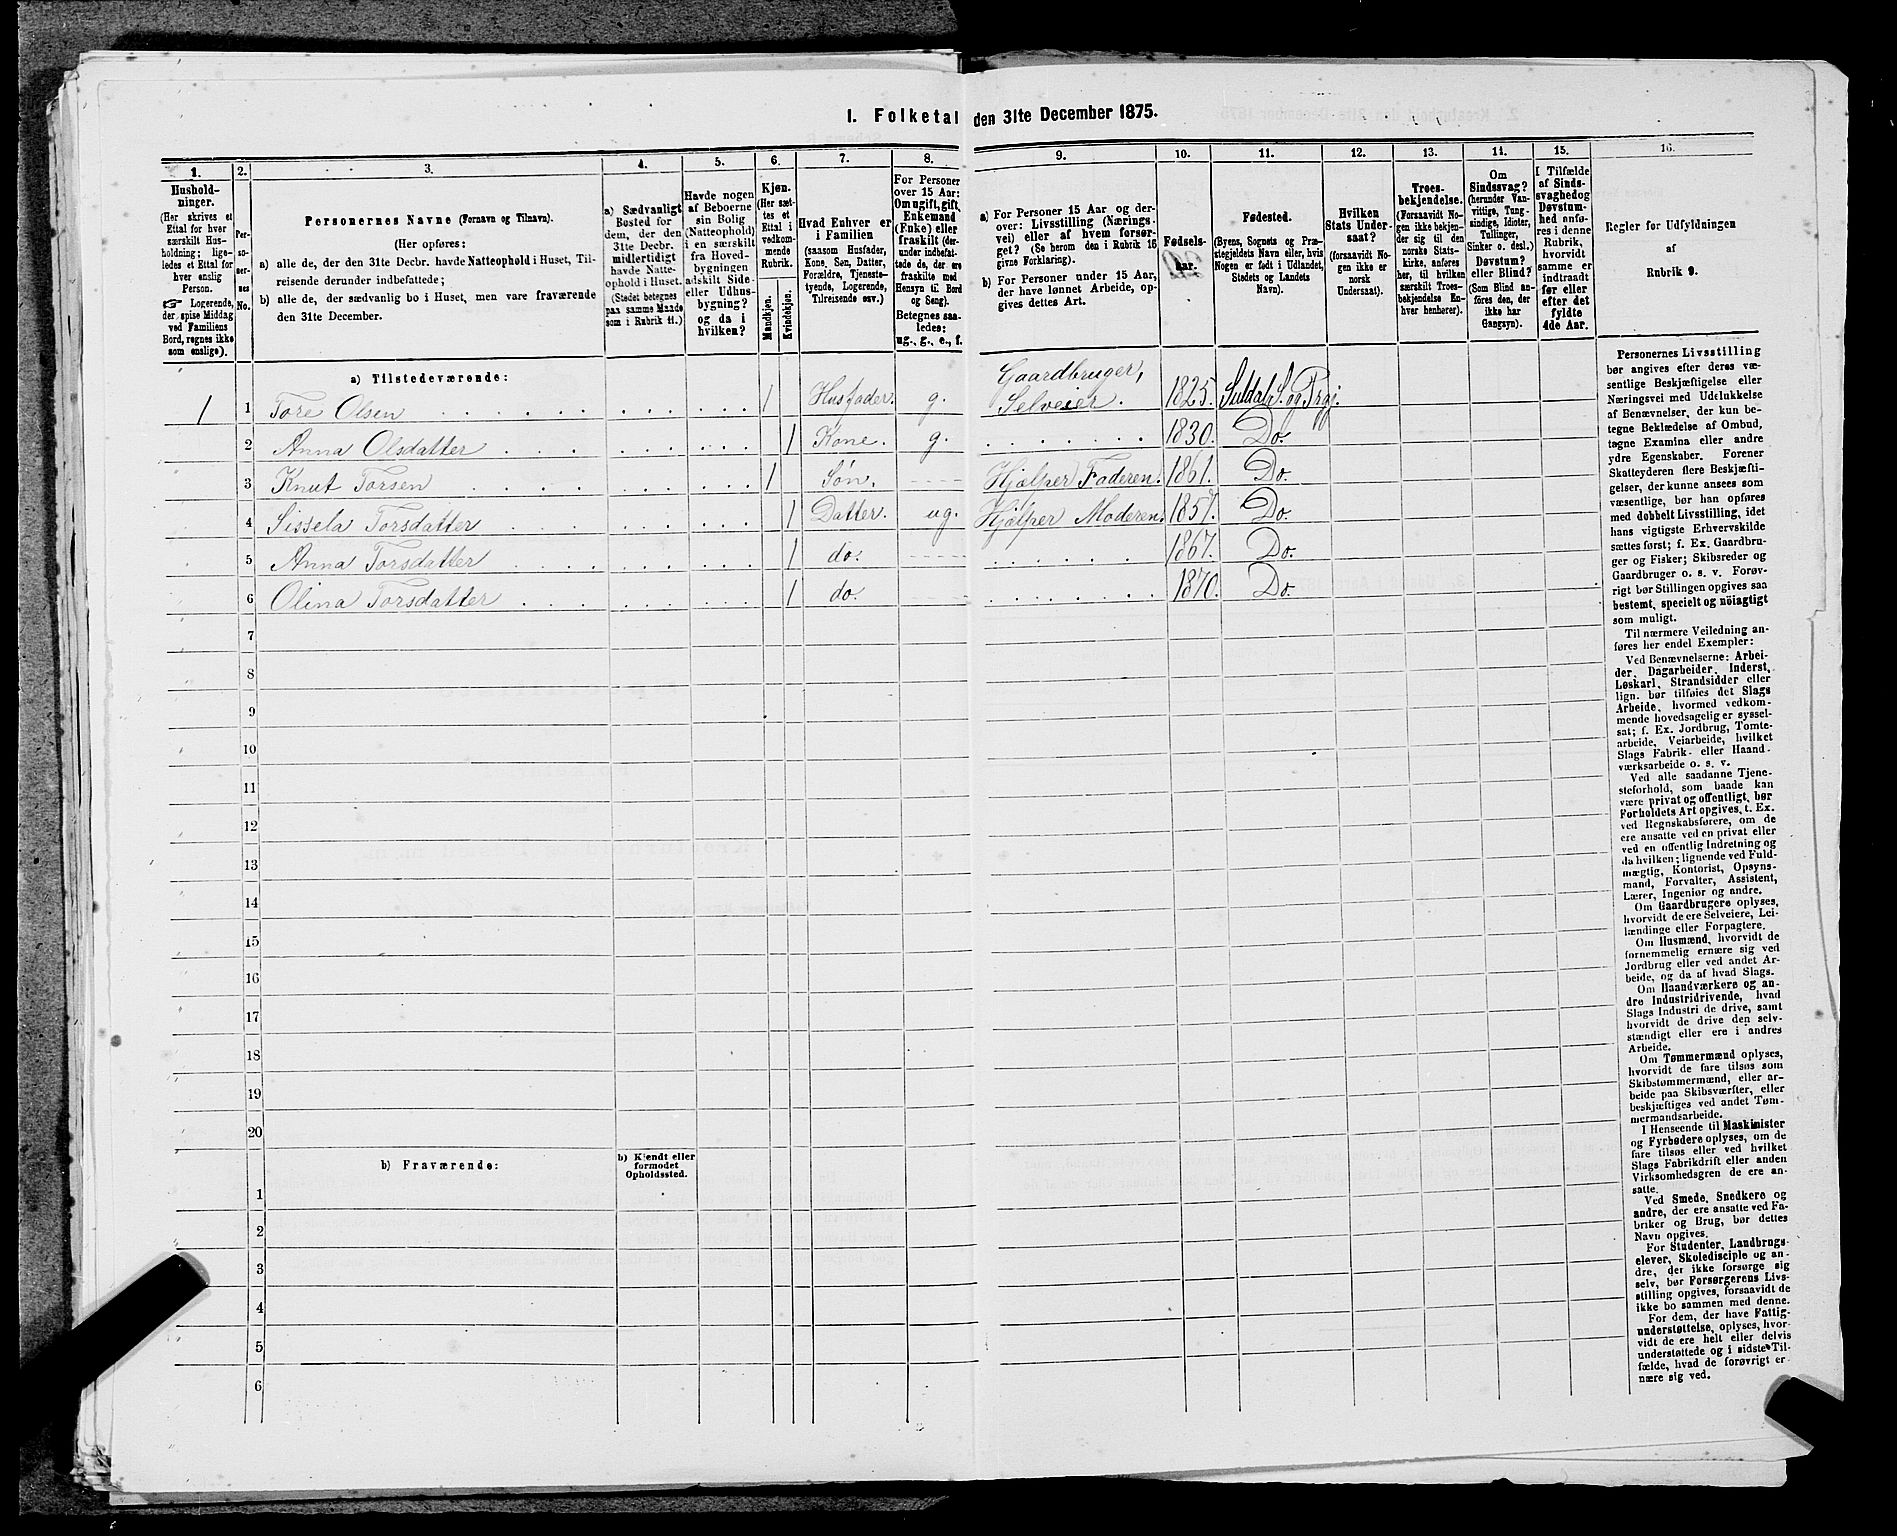 1. Folketal den 31te December 1875.
1.
2.
3.
4.
5.
6.
7.
8.
9.
10.
11.
12.
13.
14.
15.
16.
Hushold-
ninger.
(Her skrives et
Ettal for hver
særskilt Hus-
holdning; lige-
ledes et Ettal for
hver enslig
Person.
☞ Logerende,
der spise Middag
ved Familiens
Bord, regnes ikke
som enslige).
Per-
so-
ner-
nes
No.
Personernes Navne (Fornavn og Tilnavn).
(Her opføres:
a) alle de, der den 31te Decbr. havde Natteophold i Huset, Til-
reisende derunder indbefattede;
b) alle de, der sædvanlig bo i Huset, men vare fraværende
den 31te December.
a) Sædvanligt
Bosted for
dem, der den
31te Decbr.
midlertidigt
havde Natte-
ophold i Huset.
(Stedet betegnes
paa samme Maade
som i Rubrik 11.)
Havde nogen
af Beboerne
sin Bolig
(Natteophold)
i en særskilt
fra Hoved-
bygningen
adskilt Side-
eller Udhus-
bygning?
og da i
hvilken?
Kjøn.
(Her sæt-
tes et
Ettal i
vedkom-
mende
Rubrik.
Mandkjøn.
Kvindekjøn.
Hvad Enhver er
i Familien
(saasom Husfader,
Kone, Søn, Datter,
Forældre, Tjeneste-
tyende, Logerende,
Tilreisende osv.)
For Personer
over 15 Aar:
Om ugift, gift,
Enkemand
(Enke) eller
fraskilt (der-
under indbefat-
tede de, der ere
fraskilte med
Hensyn til Bord
og Seng).
Betegnes saa-
ledes:
ug., g., e., f.
a) For Personer 15 Aar og der-
over: Livsstilling (Nærings-
vei) eller af hvem forsør-
get? (Se herom den i Rubrik 16
givne Forklaring).
b) For Personer under 15 Aar,
der have lønnet Arbeide, op-
gives dettes Art.
Fødsels-
aar.
Fødested.
(Byens, Sognets og Præ-
stegjeldets Navn eller, hvis
Nogen er født i Udlandet,
Stedets og Landets
Navn).
Hvilken
Stats Under-
saat?
(forsaavidt No-
gen ikke er
norsk
Undersaat).
Troes-
bekjendelse.
(Forsaavidt No-
gen ikke bekjen-
der sig til den
norske Stats-
kirke, anføres
her, til hvilken
særskilt Troes-
bekjendelse En-
hver henhører).
Om
Sindssvag?
(herunder Van-
vittige, Tung-
sindige, Idioter,
Tullinger,
Sinker o. desl.)
Døvstum?
eller Blind?
(Som Blind an-
føres den, der
ikke har
Gangsyn).
I Tilfælde
af Sinds-
svaghed og
Døvstum-
hed anfø-
res i denne
Rubrik,
hvorvidt
samme er
indtraadt
før eller
efter det
fyldte
4de Aar.
Regler for Udfyldningen
af
Rubrik 9.
a) Tilstedeværende:
1 1 Tore Olsen 1 Husfader. g. Gaardbruger, Selveier. 1825. Suldal S. og Prgj.
2 Anna Olsdatter 1 Kone. g. 1830. Do.
3 Knut Torsen 1 Søn. Hjælper Faderen. 1861. Do.
4 Sissela Torsdatter 1 Datter. ug. Hjælper Moderen. 1857. Do.
5 Anna Torsdatter 1 do. 1867. Do.
6 Olina Torsdatter 1 do. 1870. Do.
7
8
9
10
11
12
13
14
15
16
17
18
19
20
b) Fraværende:
b) Kjendt eller
formodet
Opholdssted.
1
2
3
4
5
6
Personernes Livsstilling
bør angives efter deres væ-
sentlige Beskjæftigelse eller
Næringsvei med Udelukkelse
af Benævnelser, der kun be-
tegne Beklædelse af Ombud,
tagne Examina eller andre
ydre Egenskaber. Forener
Skatteyderen flere Beskjæfti-
gelser, der kunne ansees som
væsentlige, bør han opføres
med dobbelt Livsstilling, idet
hans vigtigste Erhvervskilde
sættes først; f. Ex. Gaardbru-
ger og Fisker; Skibsreder og
Gaardbruger o. s. v. Forøv-
rigt bør Stillingen opgives saa
bestemt, specielt og nøiagtigt
som muligt.
Til nærmere Veiledning an-
føres her endel Exempler:
Ved Benævnelserne: Arbei-
der, Dagarbeider, Inderst,
Løskarl, Strandsidder eller
lign. bør tilføies det Slags
Arbeide, hvormed vedkom-
mende hovedsagelig er syssel-
sat; f. Ex. Jordbrug, Tomte-
arbeide, Veiarbeide, hvilket
Slags Fabrik- eller Haand-
værksarbeide o. s. v.
Ved alle saadanne Tjene-
steforhold, som baade kan
være privat og offentligt, bør
Forholdets Art opgives, t. Ex.
ved Regnskabsførere, om de
ere ansatte ved en privat eller
ved en offentlig Indretning og
da hvilken; lignende ved Fuld-
mægtig, Kontorist, Opsyns-
mand, Forvalter, Assistent,
Lærer, Ingeniør og andre.
Om Gaardbrugere oplyses,
hvorvidt de ere Selveiere, Lei-
lændinge eller Forpagtere.
Om Husmænd, hvorvidt de
fornemmelig ernære sig ved
Jordbrug eller ved andet Ar-
beide, og da af hvad Slags.
Om Haandværkere og an-
dre Industridrivende, hvad
Slags Industri de drive, samt
hvorvidt de drive den selv-
stændigt eller ere i andres
Arbeide.
Om Tømmermænd oplyses,
hvorvidt de fare tilsøs som
Skibstømmermænd, eller ar-
beide paa Skibsværfter, eller
beskjæftiges ved andet Tøm-
mermandsarbeide.
I Henseende til Maskinister
og Fyrbødere oplyses, om de
fare tilsøs eller ved hvilket
Slags Fabrikdrift eller anden
Virksomhedsgren de ere an-
satte.
Ved Smede, Snedkere og
andre, der ere ansatte ved Fa-
briker og Brug, bør dettes
Navn opgives.
For Studenter, Landbrugs-
elever, Skoledisciple og an-
dre, der ikke forsørge sig
selv, bør Forsørgerens Livs-
stilling opgives, forsaavidt de
ikke bo sammen med denne.
For dem, der have Fattig-
understøttelse, oplyses, hvor-
vidt de ere helt eller delvis
understøttede og i sidste Til-
fælde, hvad de forøvrigt er-
nære sig ved.